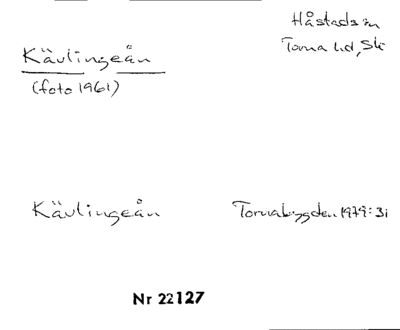 Håstads sn
Torna hd, Sk
Kävlingeån
(foto 1961)
Kävlingeån
Tornabygden 1979:31
Nr 22127